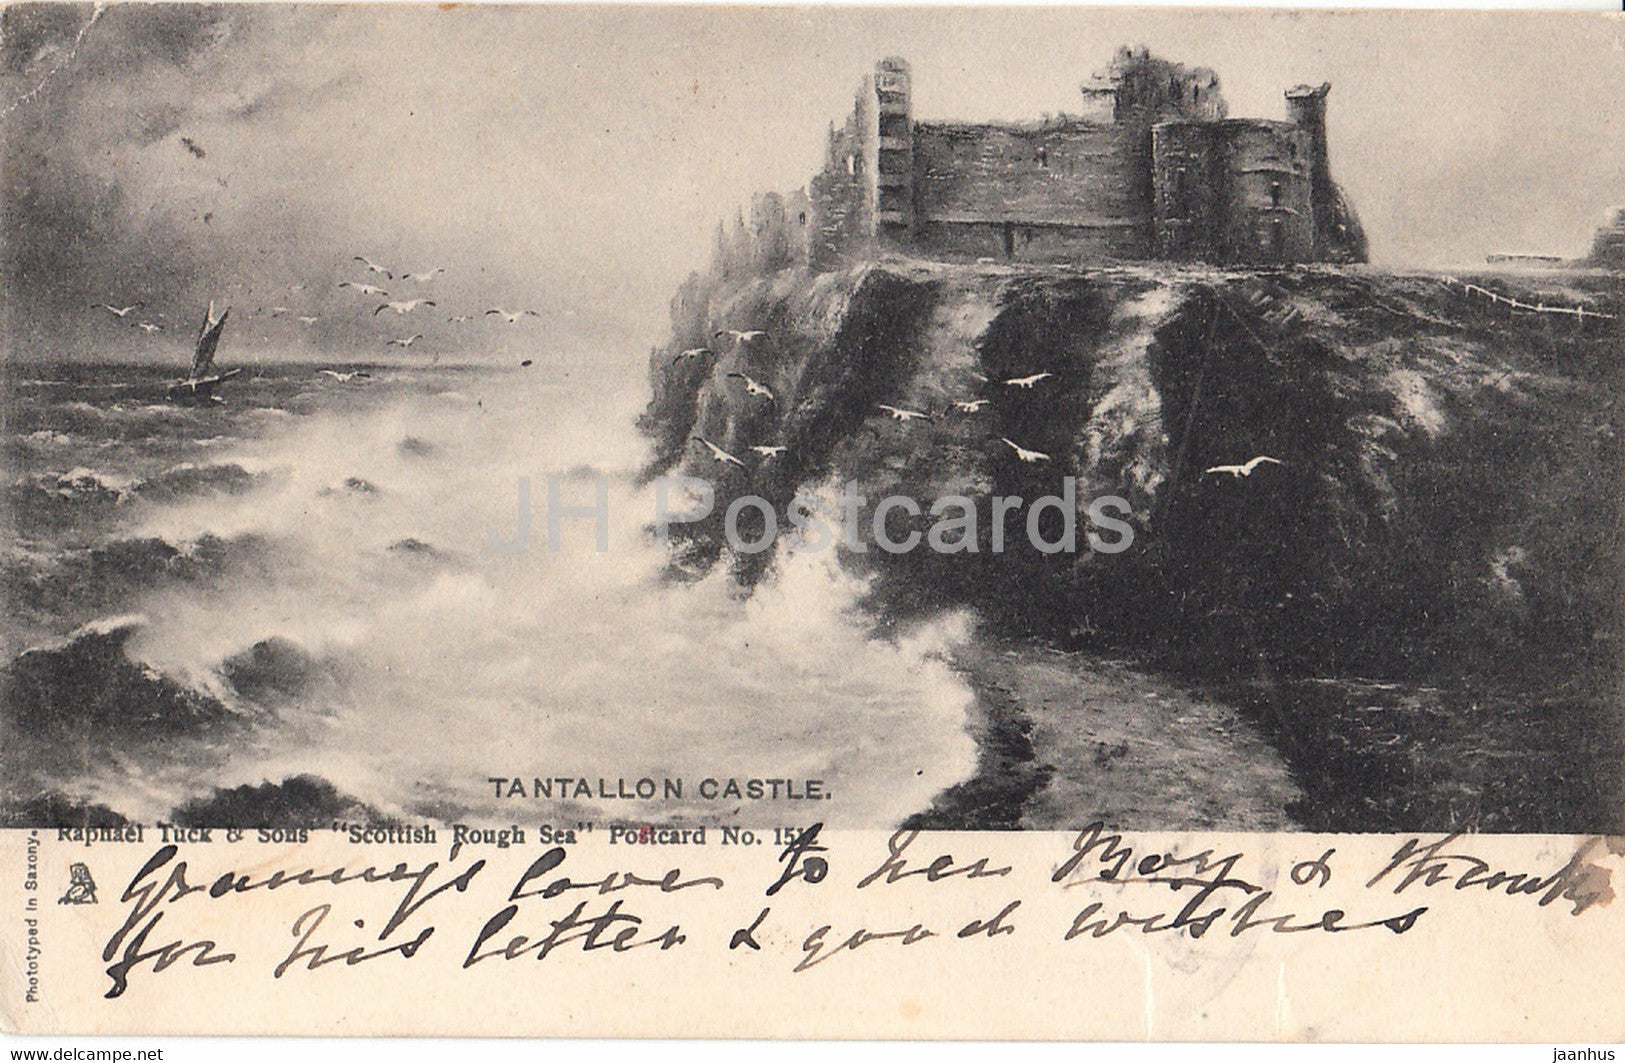 JH Postcards
TANTALLON CASTLE.
Raphael Tuck & Sons' "Scottish Rough Sea" Postcard No.
Phototyped in Saxony.
Granny's love to her Boy & thanks
for his letter & good wishes
www.delcampe.net
jaanhus